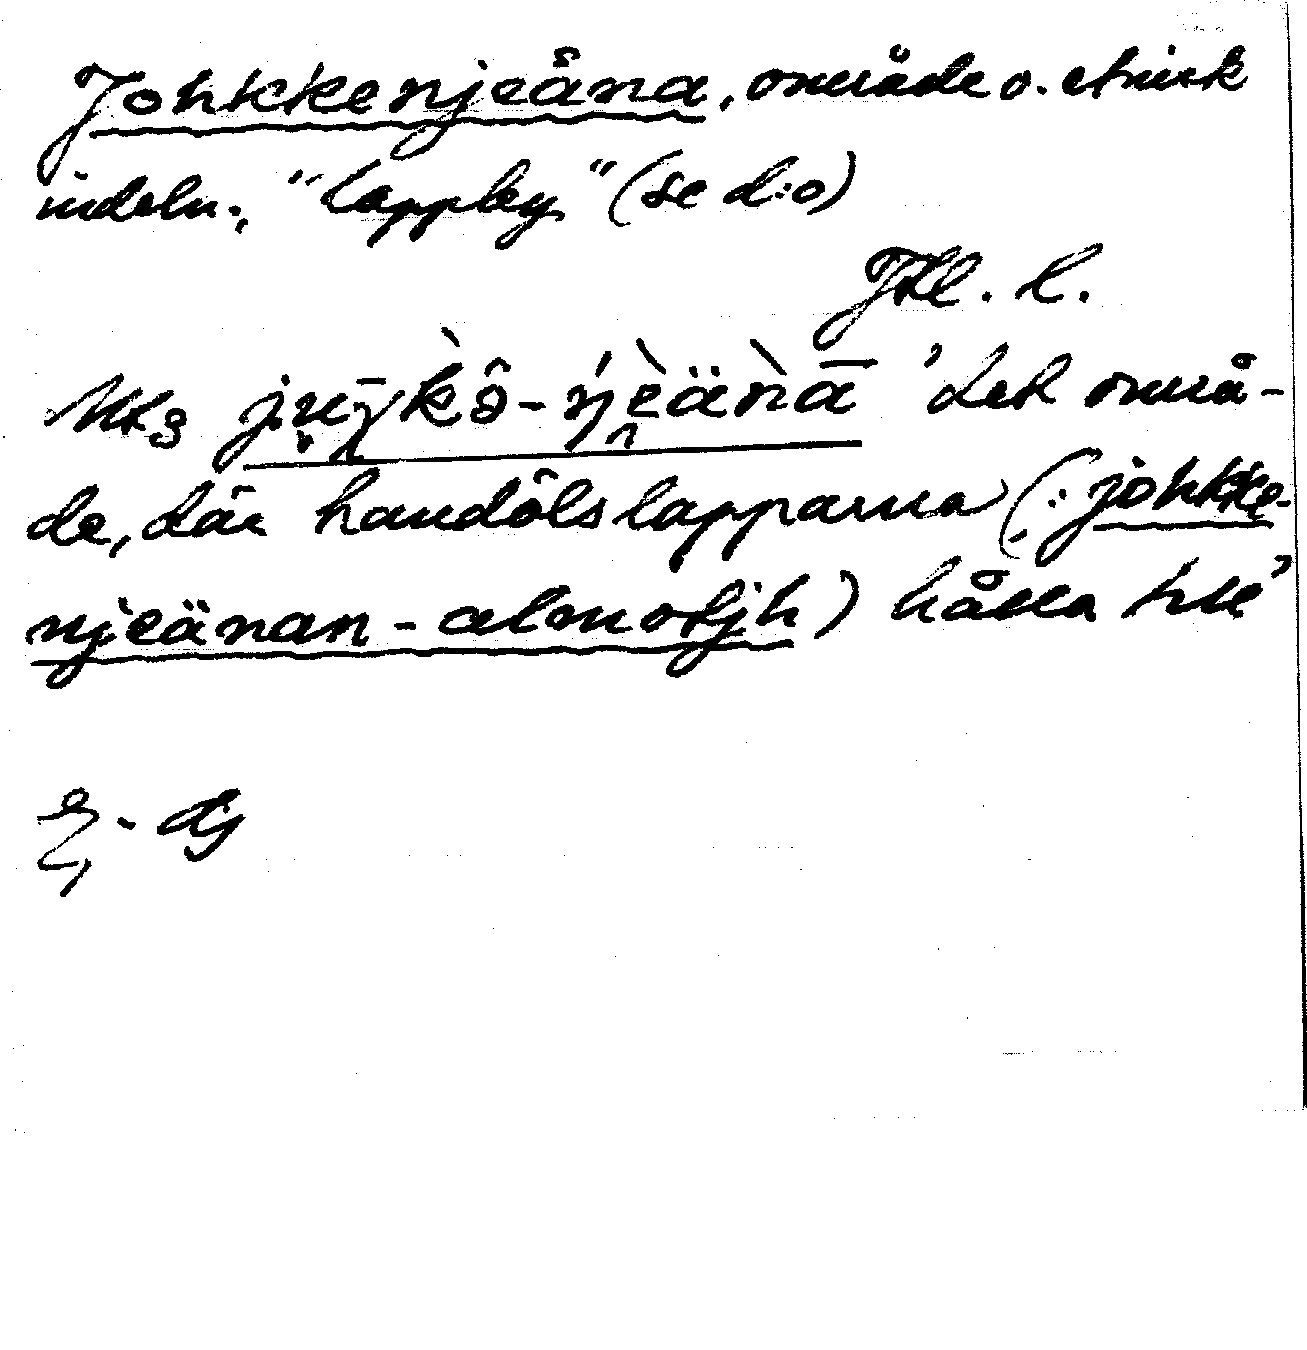 Johkkenjeåna, område o. etnisk
indeln., "lappby" (se d:o)
Jtl. l.
det områ-
de, där handölslapparna (: johkke-
njeänan-almotjh) hålla till'